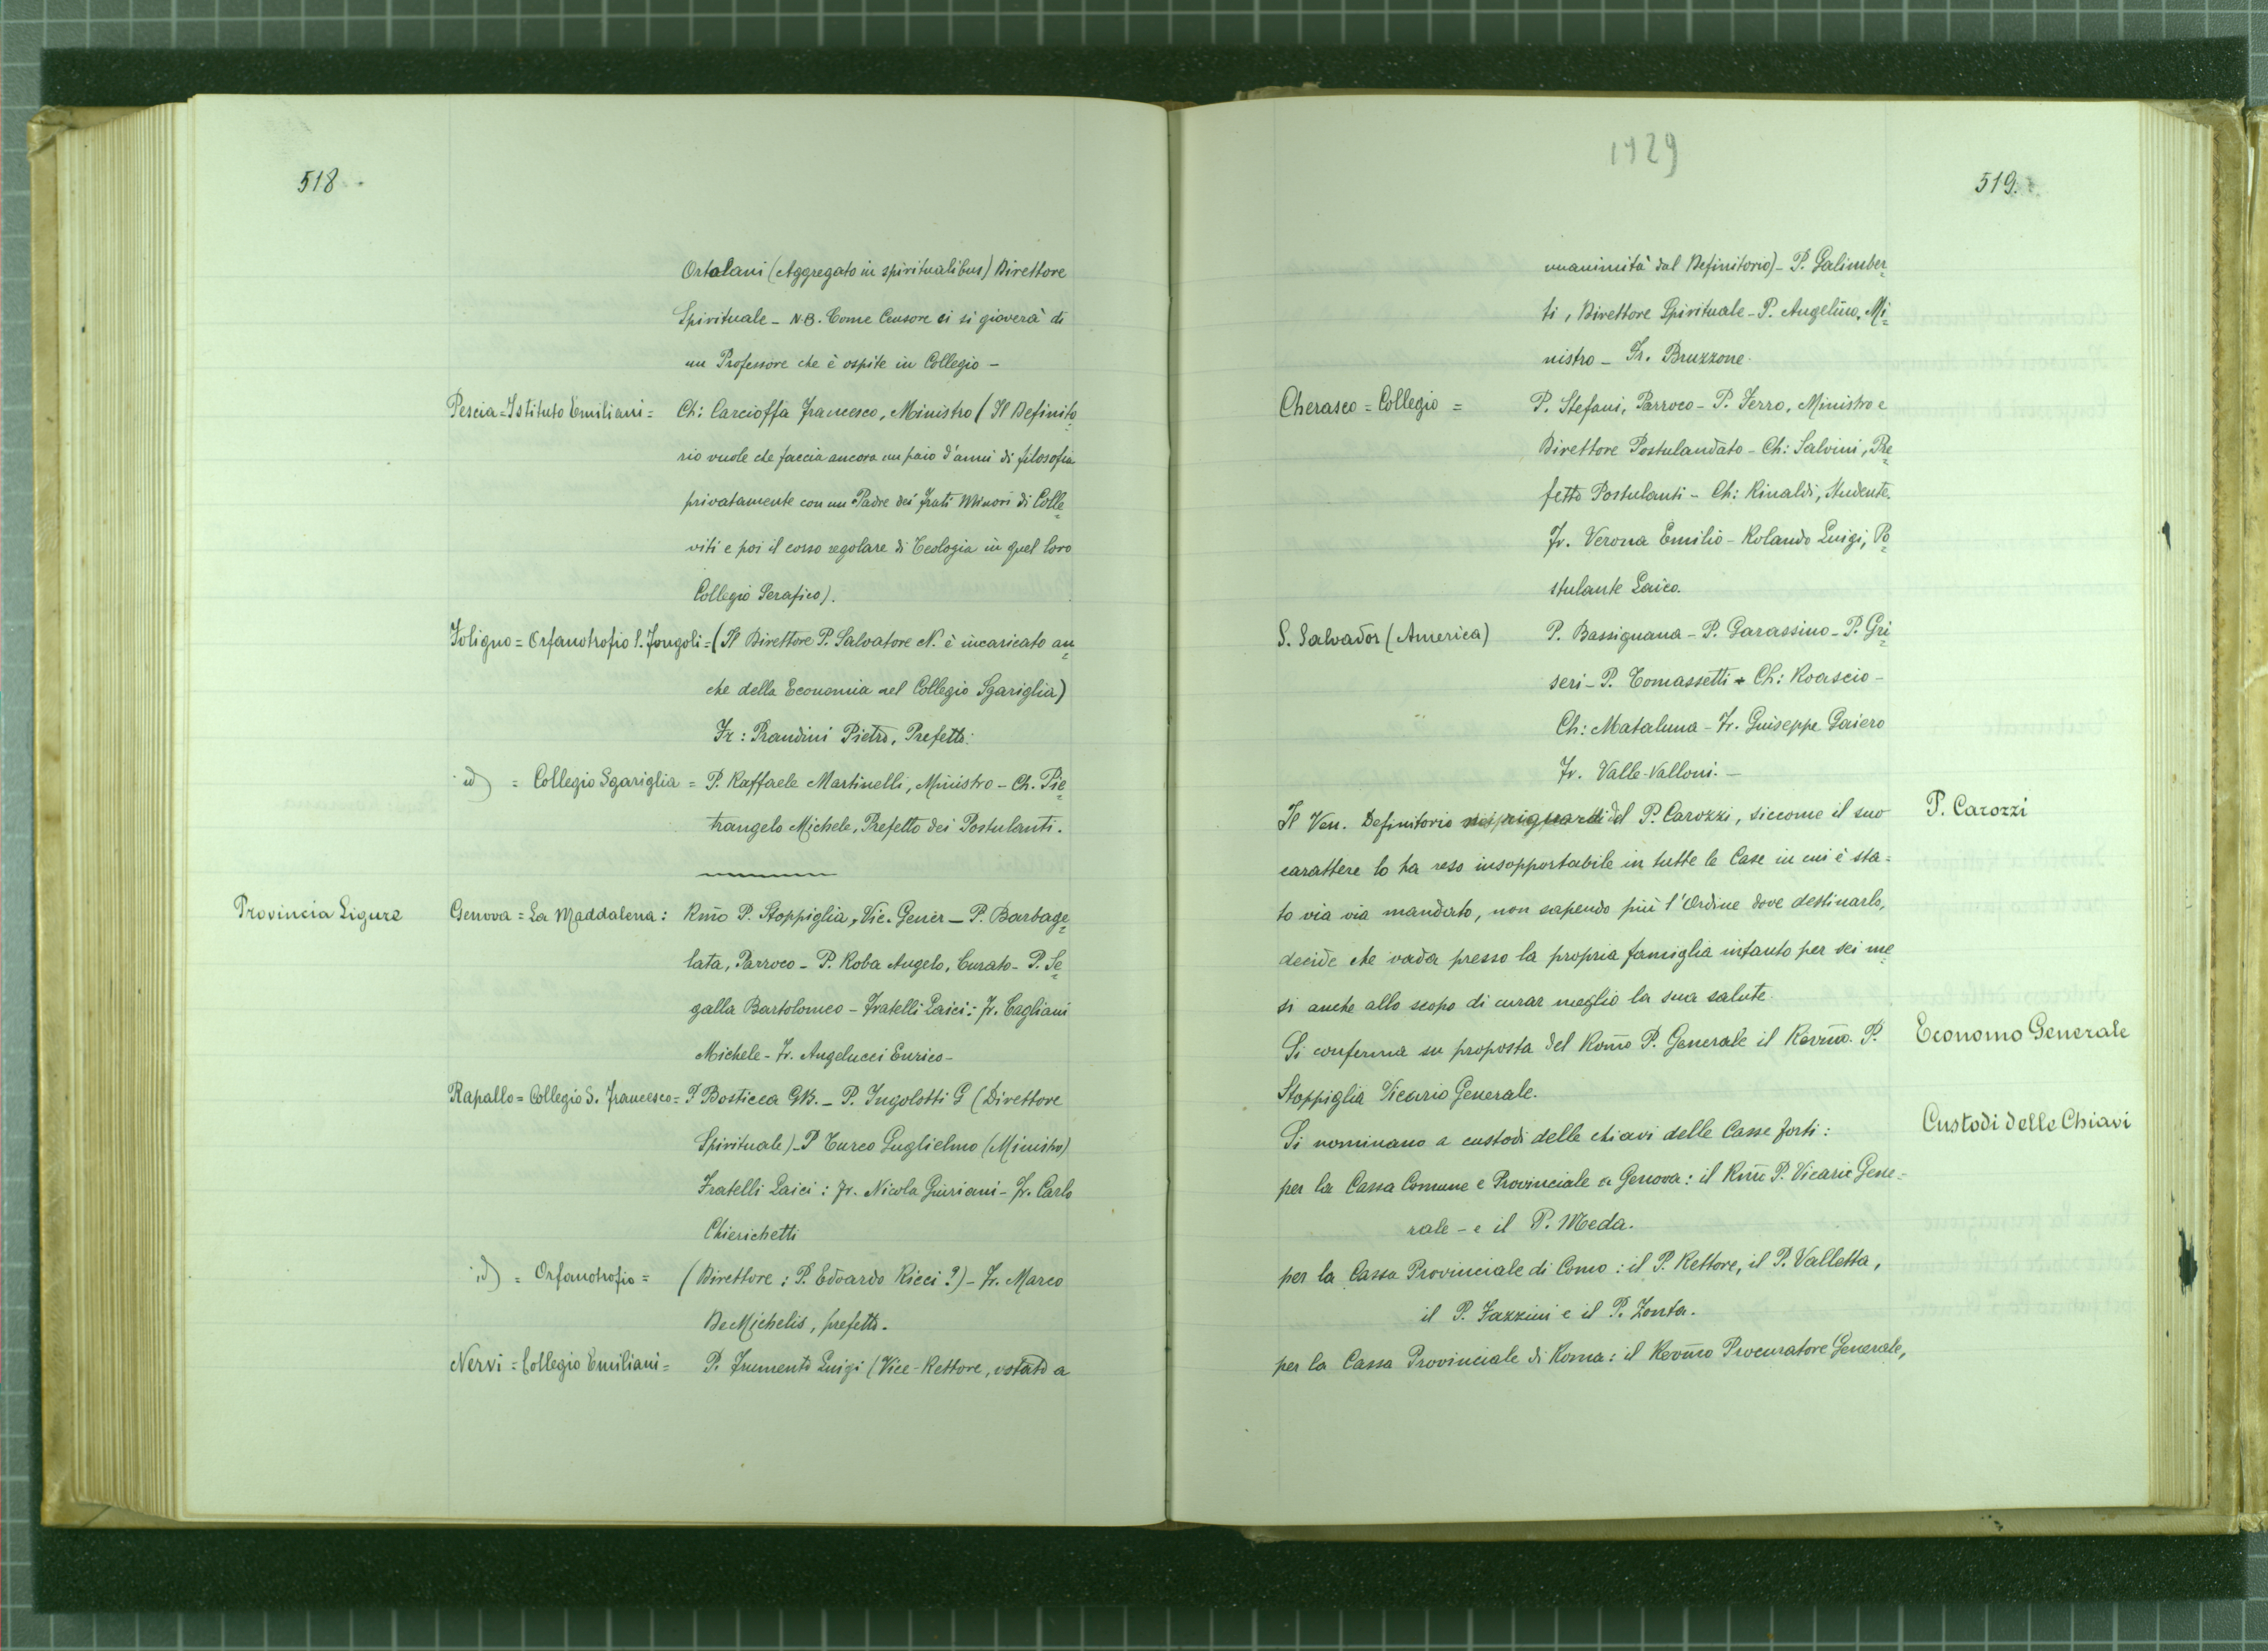 518
Ortolani (Aggregato in spiritualibus) Direttore
Spirituale - N.B. Come Censore ci si gioverà di
un Professore che è ospite in Collegio -
Pescia = Istituto Emiliani = Ch: Carcioffa Francesco, Ministro (Il Definito=
rio vuole che faccia ancora un paio d'anni di filosofia
privatamente con un Padre dei Frati Minori di Colle=
viti e poi il corso regolare di Teologia in quel loro
Collegio Serafico).
Foligno = Orfanotrofio l. Fongoli = (Il Direttore P. Salvatore N. è incaricato an=
che della Economia nel Collegio Sgariglia)
Fr: Prandini Pietro, Prefetto.
id) = Collegio Sgariglia = P. Raffaele Martinelli, Ministro - Ch. Pie=
trangelo Michele, Prefetto dei Postulanti.
Provincia Ligure
Genova = La Maddalena: Rmo P. Stoppiglia, Vic. Gener - P. Barbage=
lata, Parroco - P. Roba Angelo, Curato - P. Se=
galla Bartolomeo - Fratelli Laici: Fr. Cagliani
Michele - Fr. Angelucci Enrico -
Rapallo = Collegio S. Francesco = P Bosticca GB. - P. Ingolotti G (Direttore
Spirituale) - P Turco Guglielmo (Ministro)
Fratelli Laici: Fr. Nicola Giuriani - Fr. Carlo
Chierichetti
id) = Orfanotrofio = (Direttore: P. Edoardo Ricci?) - Fr. Marco
De Michelis, prefetto.
Nervi = Collegio Emiliani = P. Frumento Luigi (Vice-Rettore, votato a
1929
519.
unanimità dal Definitorio) - P. Galimber=
ti, Direttore Spirituale - P. Angelino, Mi=
nistro - Fr. Bruzzone.
Cherasco = Collegio = P. Stefani, Parroco - P. Ferro, Ministro e
Direttore Postulandato - Ch: Salvini, Pre=
fetto Postulanti - Ch: Rinaldi, Studente.
Fr. Verona Emilio - Rolando Luigi, Po=
stulante Laico.
S. Salvador (America) P. Bassignana - P. Garassino - P. Gri=
seri - P. Tomassetti - Ch: Roascio -
Ch: Mataluna - Fr. Guiseppe Gaiero
Fr. Valle - Valloni. -
P. Carozzi
Il Ven. Definitorio nei riguardi del P. Carozzi, siccome il suo
carattere lo ha reso insopportabile in tutte le Case in cui è sta=
to via via mandato, non sapendo più l'Ordine dove destinarlo,
decide che vada presso la propria famiglia intanto per sei me=
si anche allo scopo di curar meglio la sua salute.
Economo Generale
Si conferma su proposta del Romo P. Generale il Revmo. P.
Stoppiglia Vicario Generale.
Custodi delle Chiavi
Si nominano a custodi delle chiavi delle Casse forti:
per la Cassa Comune e Provinciale a Genova: il Rmo P. Vicario Gene=
rale - e il P. Meda.
per la Cassa Provinciale di Como: il P. Rettore, il P. Valletta,
il P. Fazzini e il P. Zonta.
per la Cassa Provinciale di Roma: il Revmo Procuratore Generale,